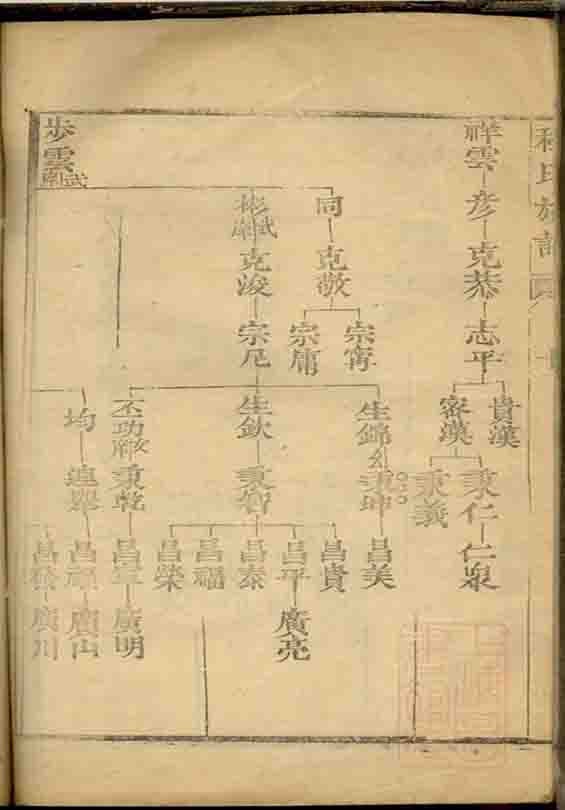 程氏族譜
祥雲 彦 克恭 志平
貴漢
密漢
秉仁 仁泉
秉義
同 克敬
宗寗
宗庸
彬 武 克浚 宗尼
生錦 秉坤 昌美
生欽 秉智
昌貴
昌平 廣亮
昌泰
昌福
昌榮
丕功 秉乾 昌 廣明
均 連舉 昌福 廣山
昌 廣川
步雲 武